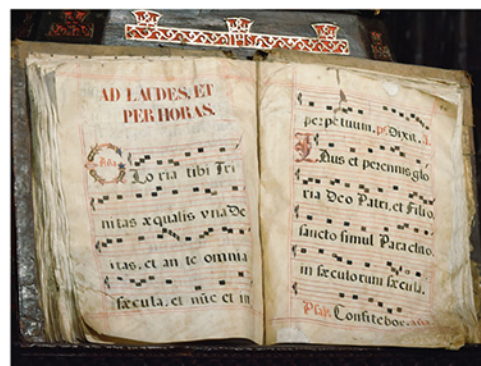 AD LAUDES, ET
PER HORAS.
Aña
GLo ria tibi Tri
nitas æqualis vna De
itas, et an te omnia
sæcula, et nūc et in
perpetuum. ps. Dixit. A.
LAus et perennis glo
ria Deo Patri, et Filio,
sancto simul Paraclito,
in sæculorum sæcula.
Psal. Confitebor. aña.
IHS